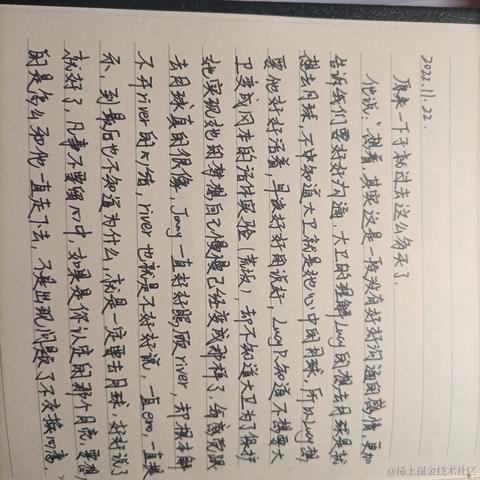 2022.11.22.
原来一下子就过去这么多天了.
他说:"摘看,其实这是一段没有好好沟通的感情,更加
告诉我们要好好沟通,大卫的理解Lucy的想去月球是就
想去月球,不中知道大卫就是她心中的月球,所以Lucy想
要他好好活着,早没好好的说好,Lucy不知道不想要大
卫变成冈本的活体实验(荒坂),却不知道大卫为了保护
她实现她的梦想,自己慢慢已经变成那样了.华高荒跟
去月球真的很像,Jonny一直好好照顾river,却根本解
不开river的心结,river也就是不好好说,一直emo,一直提
示,到最后也不知道为什么,就是一定要去月球,好好说了
就好了,凡事不要留心中,如果是你认定的那个月亮,要想
的是怎么和他一直走下去,不是出现问题了不交换问离."
@稀土掘金技术社区